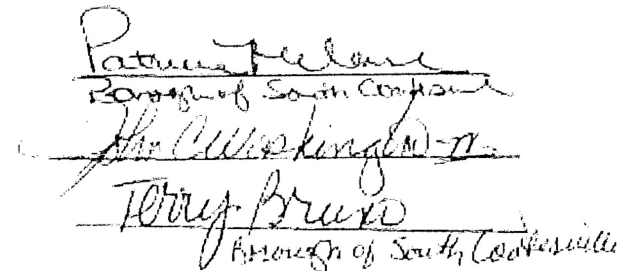 Patricia
Borough of South Coatesville
John C Washington Jr.
Terry Bruno
Borough of South Coatesville